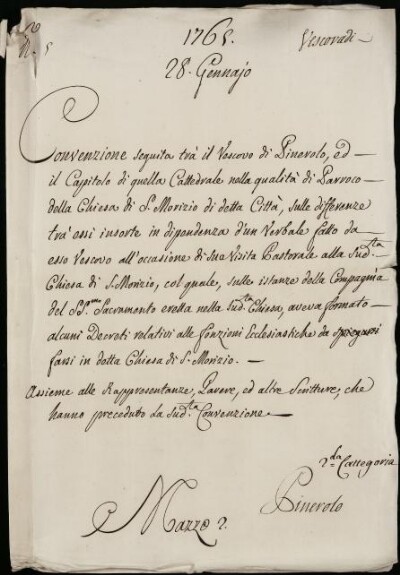 N. 5
1765.
Vescovadi
28. Gennajo
Convenzione seguita trà il Vescovo di Pinerolo, ed
il Capitolo di quella Cattedrale nella qualità di Parroco
della Chiesa di S. Morizio di detta Città, sulle differenze
trà essi insorte in dipendenza d'un Verbale fatto da
esso Vescovo all'occasione di sue Visita Pastorale alla Sud.ta
Chiesa di S. Morizio, col quale, sulle istanze della Compagnia
del SS.mo Sacramento eretta nella Sud.ta Chiesa, aveva formato
alcuni Decreti relativi alle fonzioni Ecclesiastiche da
farsi in detta Chiesa di S. Morizio.
Assieme alle Rappresentanze, Parere, ed altre Scritture, che
hanno preceduto la Sud.ta Convenzione
2.da Cattegoria
Mazzo 2.
Pinerolo